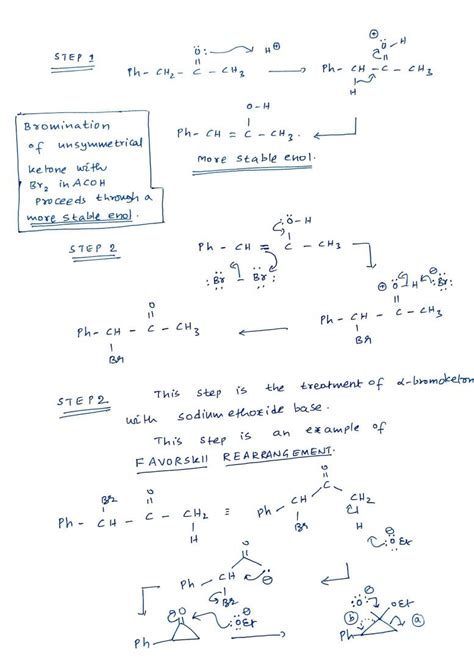 STEP 1
Ph - CH2 - C - CH3
O:
H⊕
⊕
O - H
Ph - CH - C - CH3
H
O - H
Ph - CH = C - CH3.
More stable enol.
Bromination
of unsymmetrical
ketone with
Br2 in ACOH
proceeds through a
more stable enol.
STEP 2
:Ö - H
Ph - CH = C - CH3
:Br - Br:
⊕ O H :Br:⊖
Ph - CH - C - CH3
Br
O
Ph - CH - C - CH3
Br
STEP 2
This step is the treatment of α-bromoketon
with sodium ethoxide base.
This step is an example of
FAVORSKII REARRANGEMENT.
Br O
Ph - CH - C - CH2 ≡
H
O
C
Ph - CH CH2
Br H
:OEt ⊖
O
Ph - CH ⊖
Br
O
Ph
:OEt ⊖
:O:⊖ OEt
(b) (a)
Ph